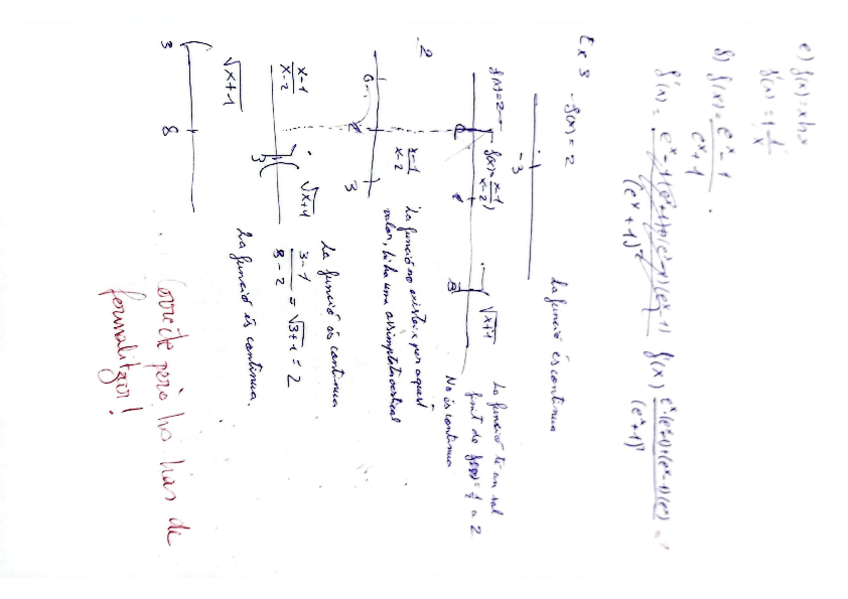 e) f(x) = x ln x
f'(x) = 1 · 1/x
f) f(x) = (e^x - 1)/(e^x + 1)
f'(x) =
(e^x + 1)^2
f'(x) e^x·(e^x+1)+(e^x-1)(e^x) =
(e^x+1)^2
Ex 3 - f(x) = 2
-3
La funció és continua
f(x) = 2
f(x) = (x-1)/(x-2)
√x+1
La funció té un sal
No és continua
2
0
3
(x-1)/(x-2)
La funció no existeix per aquest
valor, hi ha una assimptota vertical
(x-1)/(x-2)
3
√x+1
La funció és continua
(3-1)/(3-2) = √3+1 = 2
√x+1
3
8
La funció és continua.
Correcte però ho has de
formalitzar!